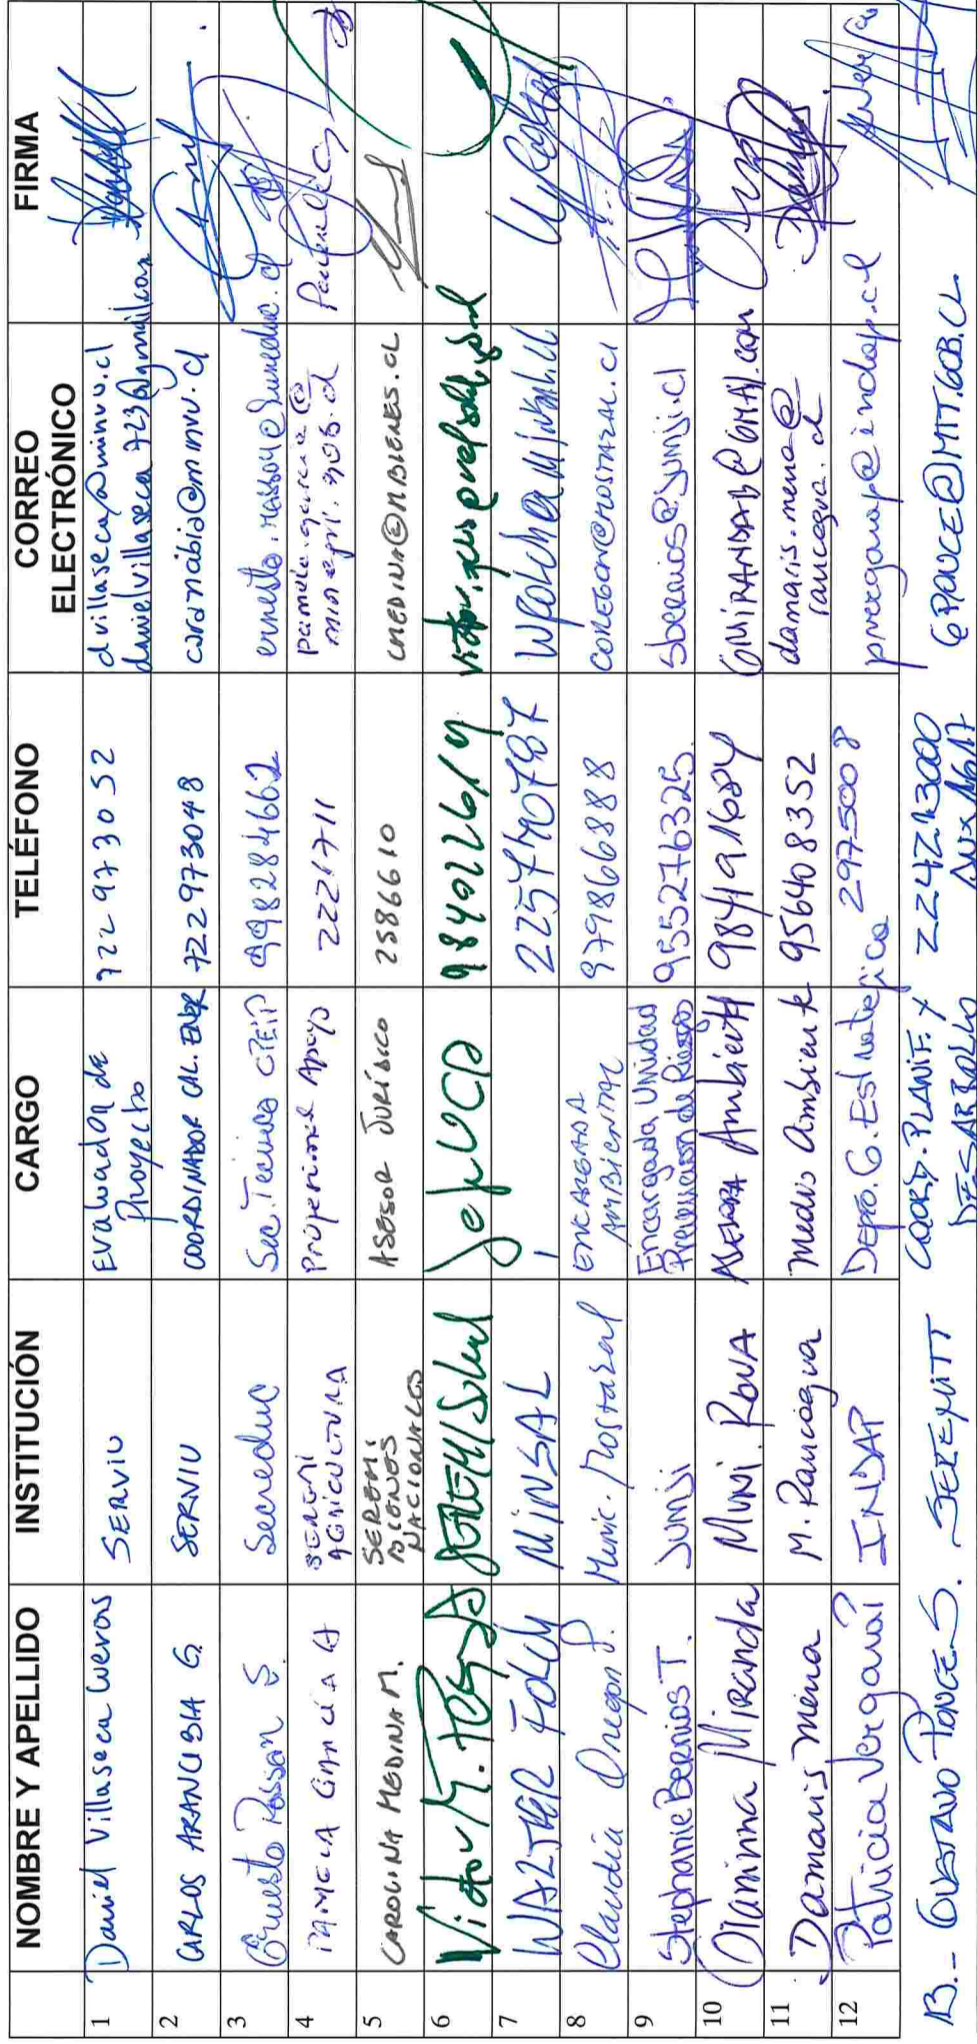 NOMBRE Y APELLIDO INSTITUCIÓN CARGO TELÉFONO CORREO ELECTRÓNICO FIRMA
1 Daniel Villaseca Cuevas SERVIU Evaluador de Proyecto 722973052 dvillaseca@minvu.cl danielvillaseca723@gmail.com
2 CARLOS ARANCIBIA G. SERVIU COORDINADOR CAL. ENER 722973048
3 Ernesto S. Secreduc Sec. Tecnico 998284662
4 PAMELA GARCIA A SEREMI AGRICULTURA Profesional Apoyo 2221711 pamela.garcia@minagri.gob.cl
5 CAROLINA MEDINA M. SEREMI BIENES NACIONALES ASESOR JURÍDICO 2586610 CMEDINA@MBIENES.CL
6 Victor SEREMI Salud 98492619
7 WALTER Folch MINSAL 225740787 wfolch@minsal.cl
8 Claudia Oregon P. Munic. Mostazal ENCARGADA AMBIENTAL 979866888 COREGON@MOSTAZAL.CL
9 Stephanie Berrios T. JUNJI Encargada Unidad Prevencion de Riesgos 955276325 Sberrios@junji.cl
10 Dianinna Miranda MUNI. Asesora Ambiental 984191684
11 Damaris Mena M. Rancagua Medio Ambiente 956408352 damaris.mena@rancagua.cl
12 Patricia Vergara INDAP Depto. G. Estrategica 2975008
13.- GUSTAVO PONCE S. SEREMITT COORD. PLANIF. Y DESARROLLO 224213000 GPONCE@MTT.GOB.CL